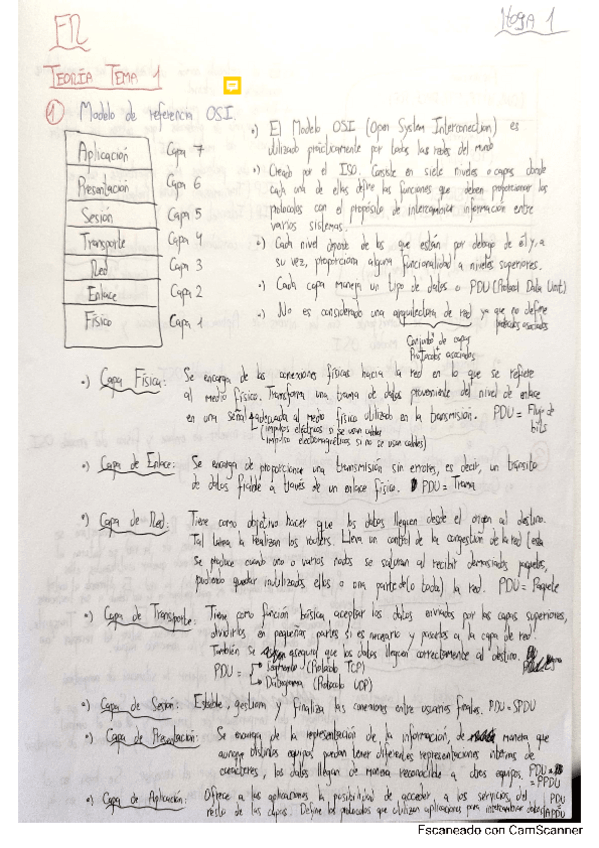 FR
Hoja 1
TEORÍA TEMA 1
1 Modelo de referencia OSI.
Aplicación Capa 7
Presentación Capa 6
Sesión Capa 5
Transporte Capa 4
Red Capa 3
Enlace Capa 2
Físico Capa 1
•) El Modelo OSI (Open System Interconection) es
utilizado prácticamente por todas las redes del mundo
•) Creado por el ISO. Consiste en siete niveles o capas donde
cada una de ellas define las funciones que deben proporcionar los
protocolos con el propósito de intercambiar información entre
varios sistemas.
•) Cada nivel depende de los que están por debajo de él y, a
su vez, proporciona alguna funcionalidad a niveles superiores.
•) Cada capa maneja un tipo de datos o PDU (Protocol Data Unit)
•) No es considerado una arquitectura de red ya que no define
protocolos asociados
Conjunto de capas
Protocolos asociados
•) Capa Física: Se encarga de las conexiones físicas hacia la red en lo que se refiere
al medio físico. Transforma una trama de datos proveniente del nivel de enlace
en una señal adecuada al medio físico utilizado en la transmisión. PDU = Flujo de
bits
(impulsos eléctricos si se usan cables)
(impulso electromagnéticos si no se usan cables)
•) Capa de Enlace: Se encarga de proporcionar una transmisión sin errores, es decir, un tránsito
de datos fiable a través de un enlace físico. PDU = Trama
•) Capa de Red: Tiene como objetivo hacer que los datos lleguen desde el origen al destino.
Tal tarea la realizan los routers. Lleva un control de la congestión de la red (esta
se produce cuando uno o varios nodos se saturan al recibir demasiados paquetes,
pudiendo quedar inutilizados ellos o una parte de (o toda) la red. PDU = Paquete
•) Capa de Transporte: Tiene como función básica aceptar los datos enviados por las capas superiores,
dividirlos en pequeñas partes si es necesario y pasarlos a la capa de red.
También se asegura que los datos lleguen correctamente al destino.
PDU = Segmento (Protocolo TCP)
Datagrama (Protocolo UDP)
•) Capa de Sesión: Establece, gestiona y finaliza las conexiones entre usuarios finales. PDU = SPDU
•) Capa de Presentación: Se encarga de la representación de la información, de manera que
aunque distintos equipos puedan tener diferentes representaciones internas de
caracteres, los datos llegan de manera reconocible a otros equipos. PDU =
= PPDU
•) Capa de Aplicación: Ofrece a las aplicaciones la posibilidad de acceder a los servicios del PDU
resto de las capas. Define los protocolos que utilizan aplicaciones para intercambiar datos APDU
Escaneado con CamScanner